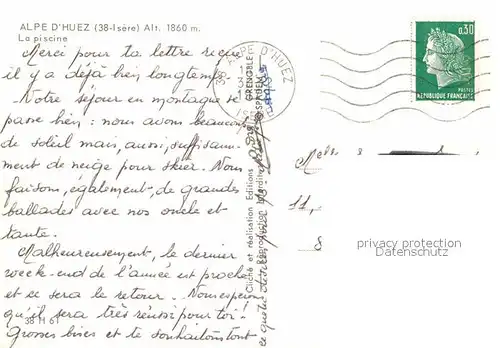 ALPE D'HUEZ (38-Isère) Alt. 1860 m.
La piscine
Merci pour ta lettre reçue
il y a déjà bien longtemps.
Notre séjour en montagne se
passe bien : nous avons beaucoup
de soleil mais, aussi, suffisam-
ment de neige pour skier. Nous
faisons, également, de grandes
ballades avec nos oncle et
tante.
Malheureusement, le dernier
week-end de l'année est proche
et ce sera le retour. Nous espérons
qu'il sera très réussi pour toi !
Grosses bises et te souhaitons tout
38 H 61
Cliché et réalisation Editions
Reproduction interdite
GRENOBLE
SPADEM
ALPE D'HUEZ
ISERE
0,30
POSTES
REPUBLIQUE FRANÇAISE
11,
8
privacy protection
Datenschutz